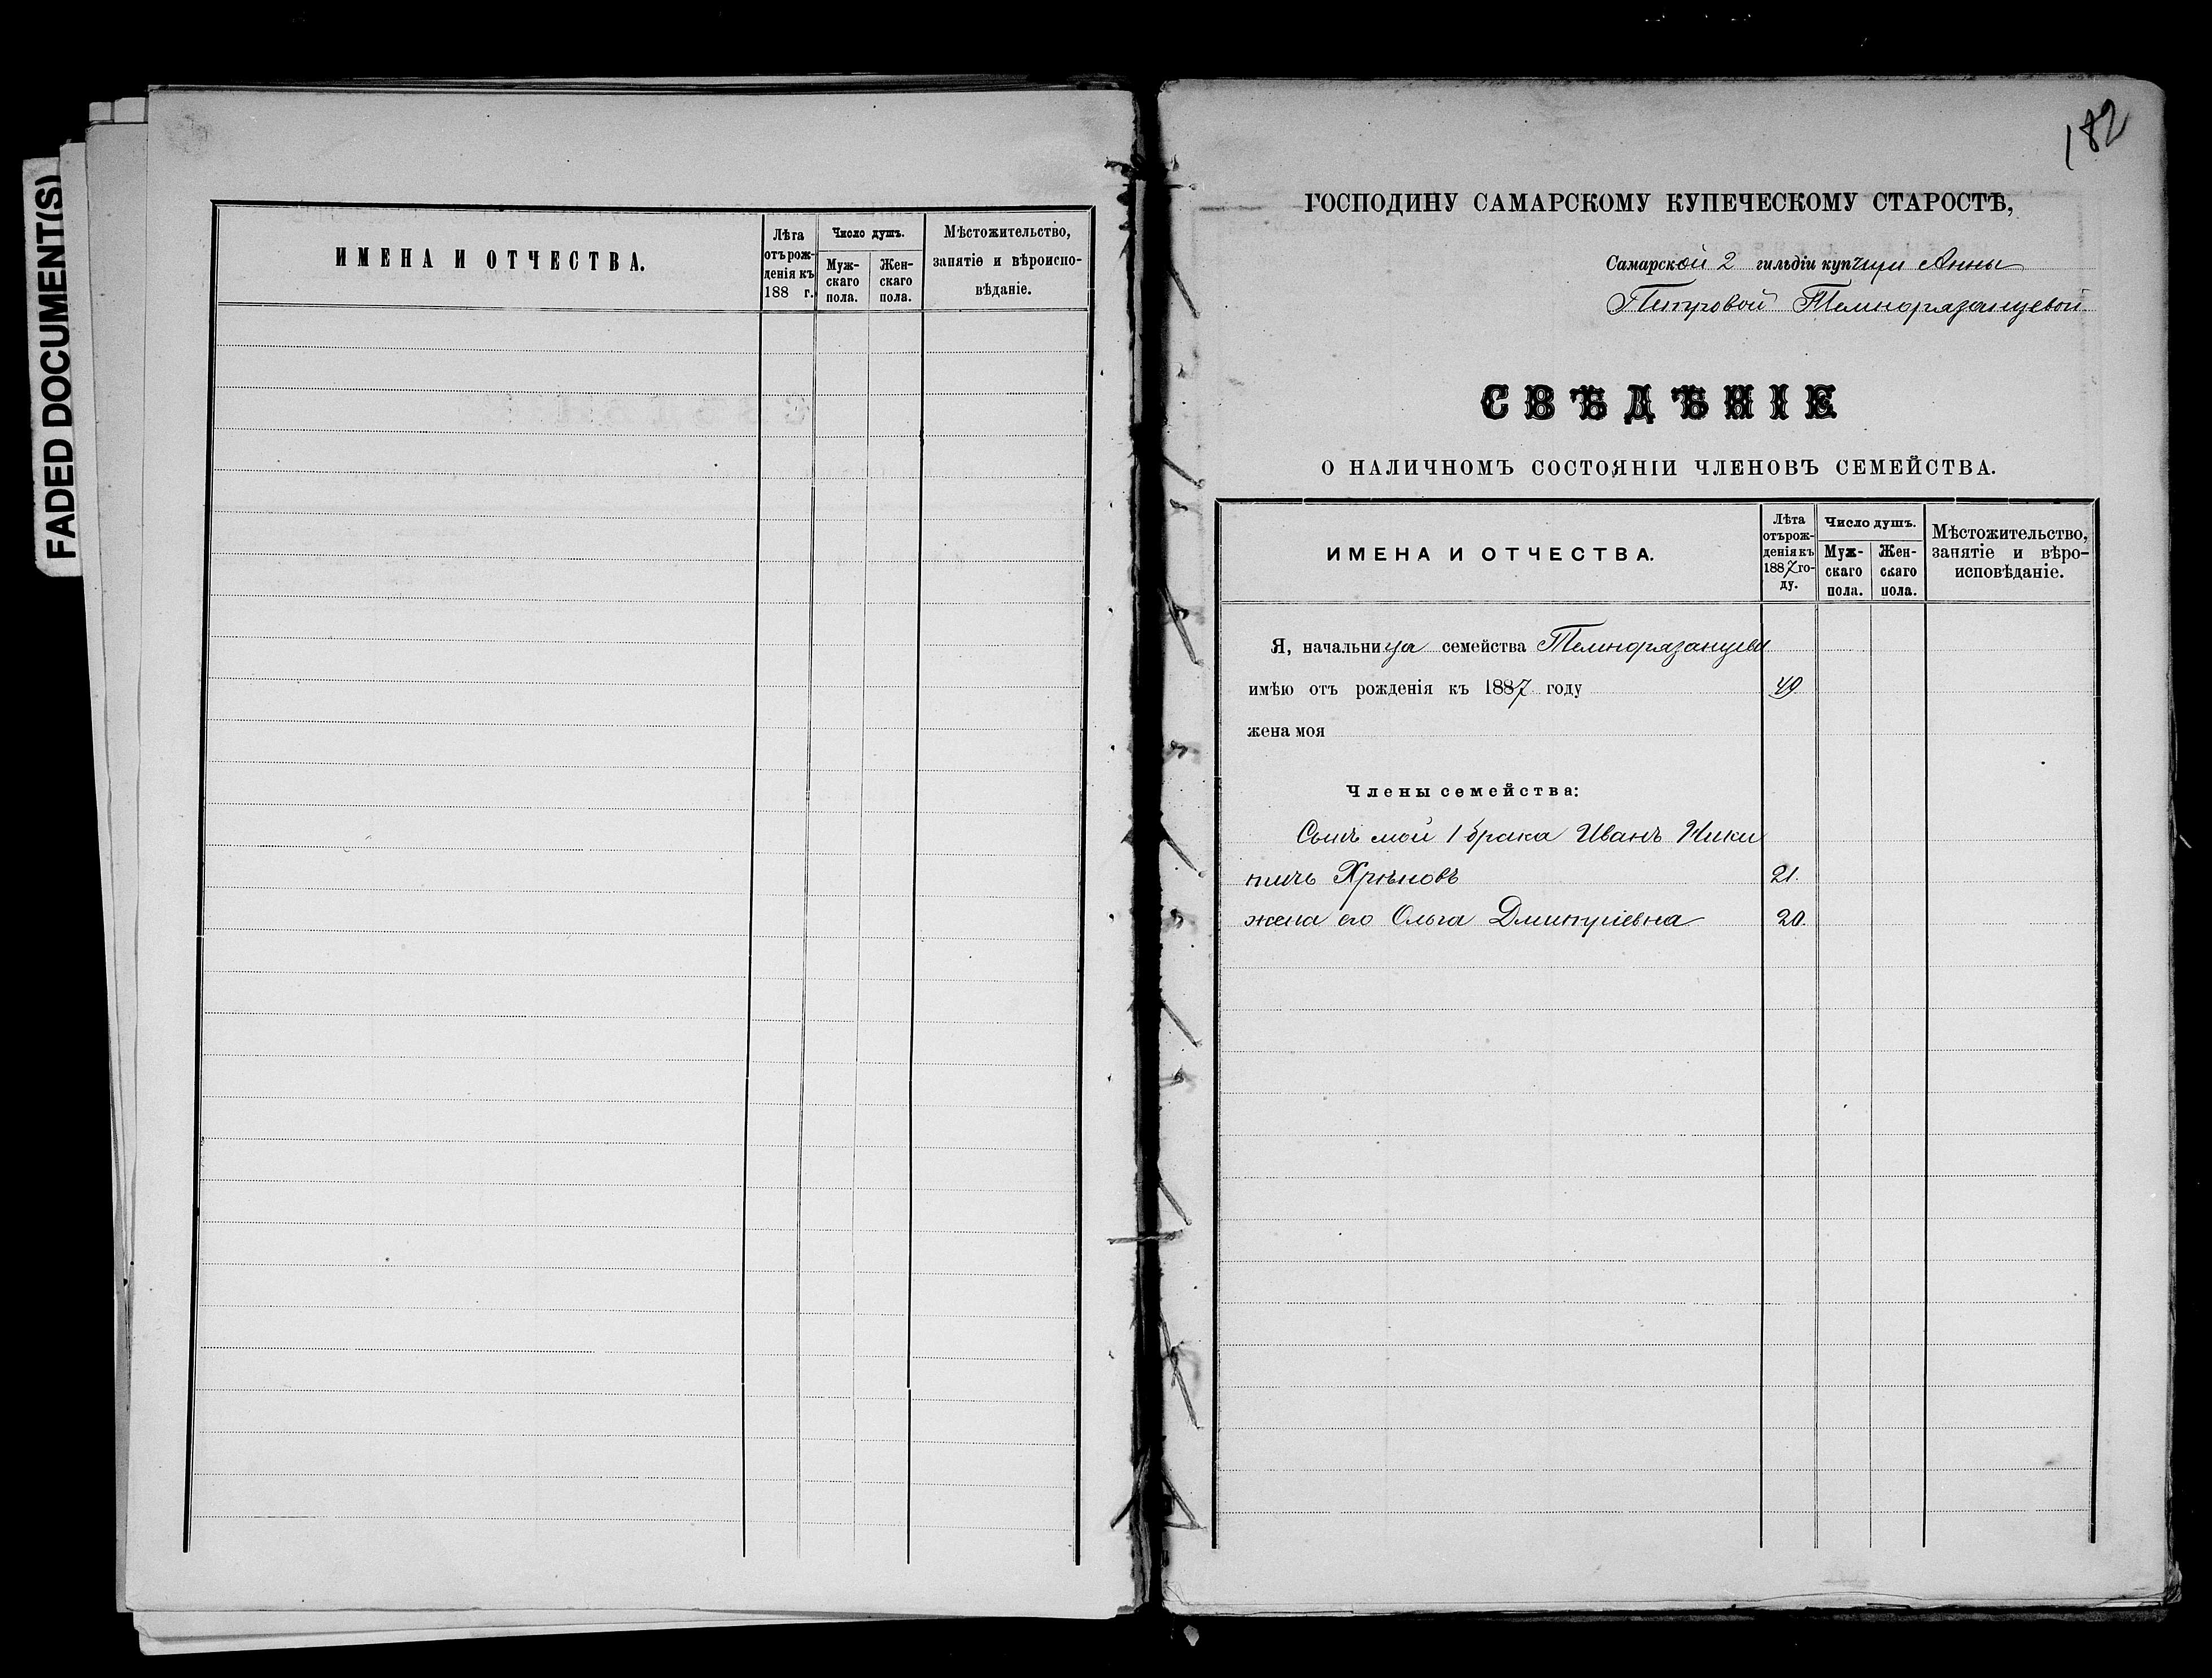 FADED DOCUMENT(S)
ИМЕНА И ОТЧЕСТВА.
Лѣта
отъ рож-
денія къ
188 г.
Число душъ.
Муж-
скаго
пола.
Жен-
скаго
пола.
Мѣстожительство,
занятіе и вѣроиспо-
вѣданіе.
182
ГОСПОДИНУ САМАРСКОМУ КУПЕЧЕСКОМУ СТАРОСТѢ,
Самарской 2 гильдіи купчихи Анны
Петровой Темнорязанцевой.
СВѢДѢНІЕ
О НАЛИЧНОМЪ СОСТОЯНІИ ЧЛЕНОВЪ СЕМЕЙСТВА.
ИМЕНА И ОТЧЕСТВА.
Лѣта
отърож-
денія къ
1887 го-
ду.
Число душъ.
Муж-
скаго
пола.
Жен-
скаго
пола.
Мѣстожительство,
занятіе и вѣро-
исповѣданіе.
Я, начальница семейства Темнорязанцева
имѣю отъ рожденія къ 1887 году 49
жена моя
Члены семейства:
Сынъ мой 1 брака Иванъ Ники
тичь Хрѣновъ 21.
жена его Ольга Дмитріевна 20.